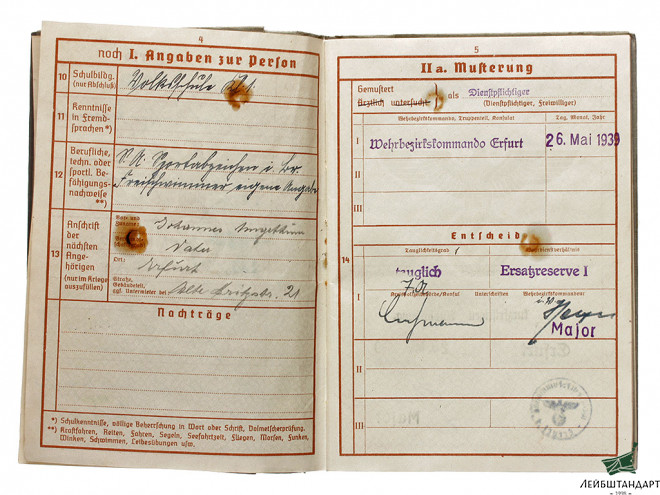 4
noch I. Angaben zur Person
10 Schulbildg. (nur Abschluß)
Volksschule
11 Kenntnisse in Fremdsprachen *)
12 Berufliche, techn. oder sportl. Befähigungsnachweise **)
S.A. Sportabzeichen i. Br.
Freischwimmer eigene Angabe
13 Anschrift der nächsten Angehörigen (nur im Kriege auszufüllen)
Johannes
Vater
Ort:
Erfurt
Straße, Gebäudeteil, ggf. Untermieter bei
21
Nachträge
*) Schulkenntnisse, völlige Beherrschung in Wort oder Schrift, Dolmetscherprüfung.
**) Kraftfahren, Reiten, Fahren, Segeln, Seefahrtzeit, Fliegen, Morsen, Funken,
Winken, Schwimmen, Leibesübungen usw.
5
II a. Musterung
Gemustert
Ärztlich untersucht
als Dienstpflichtiger
(Dienstpflichtiger, Freiwilliger)
Wehrbezirkskommando, Truppenteil, Konsulat
Tag, Monat, Jahr
I Wehrbezirkskommando Erfurt 26. Mai 1939
II
III
Entscheid
14
Tauglichkeitsgrad
tauglich
Ersatzreserve I
I
Unterschriften
Wehrbezirkskommandeur
Major
II
III
ЛЕЙБШТАНДАРТ
1998